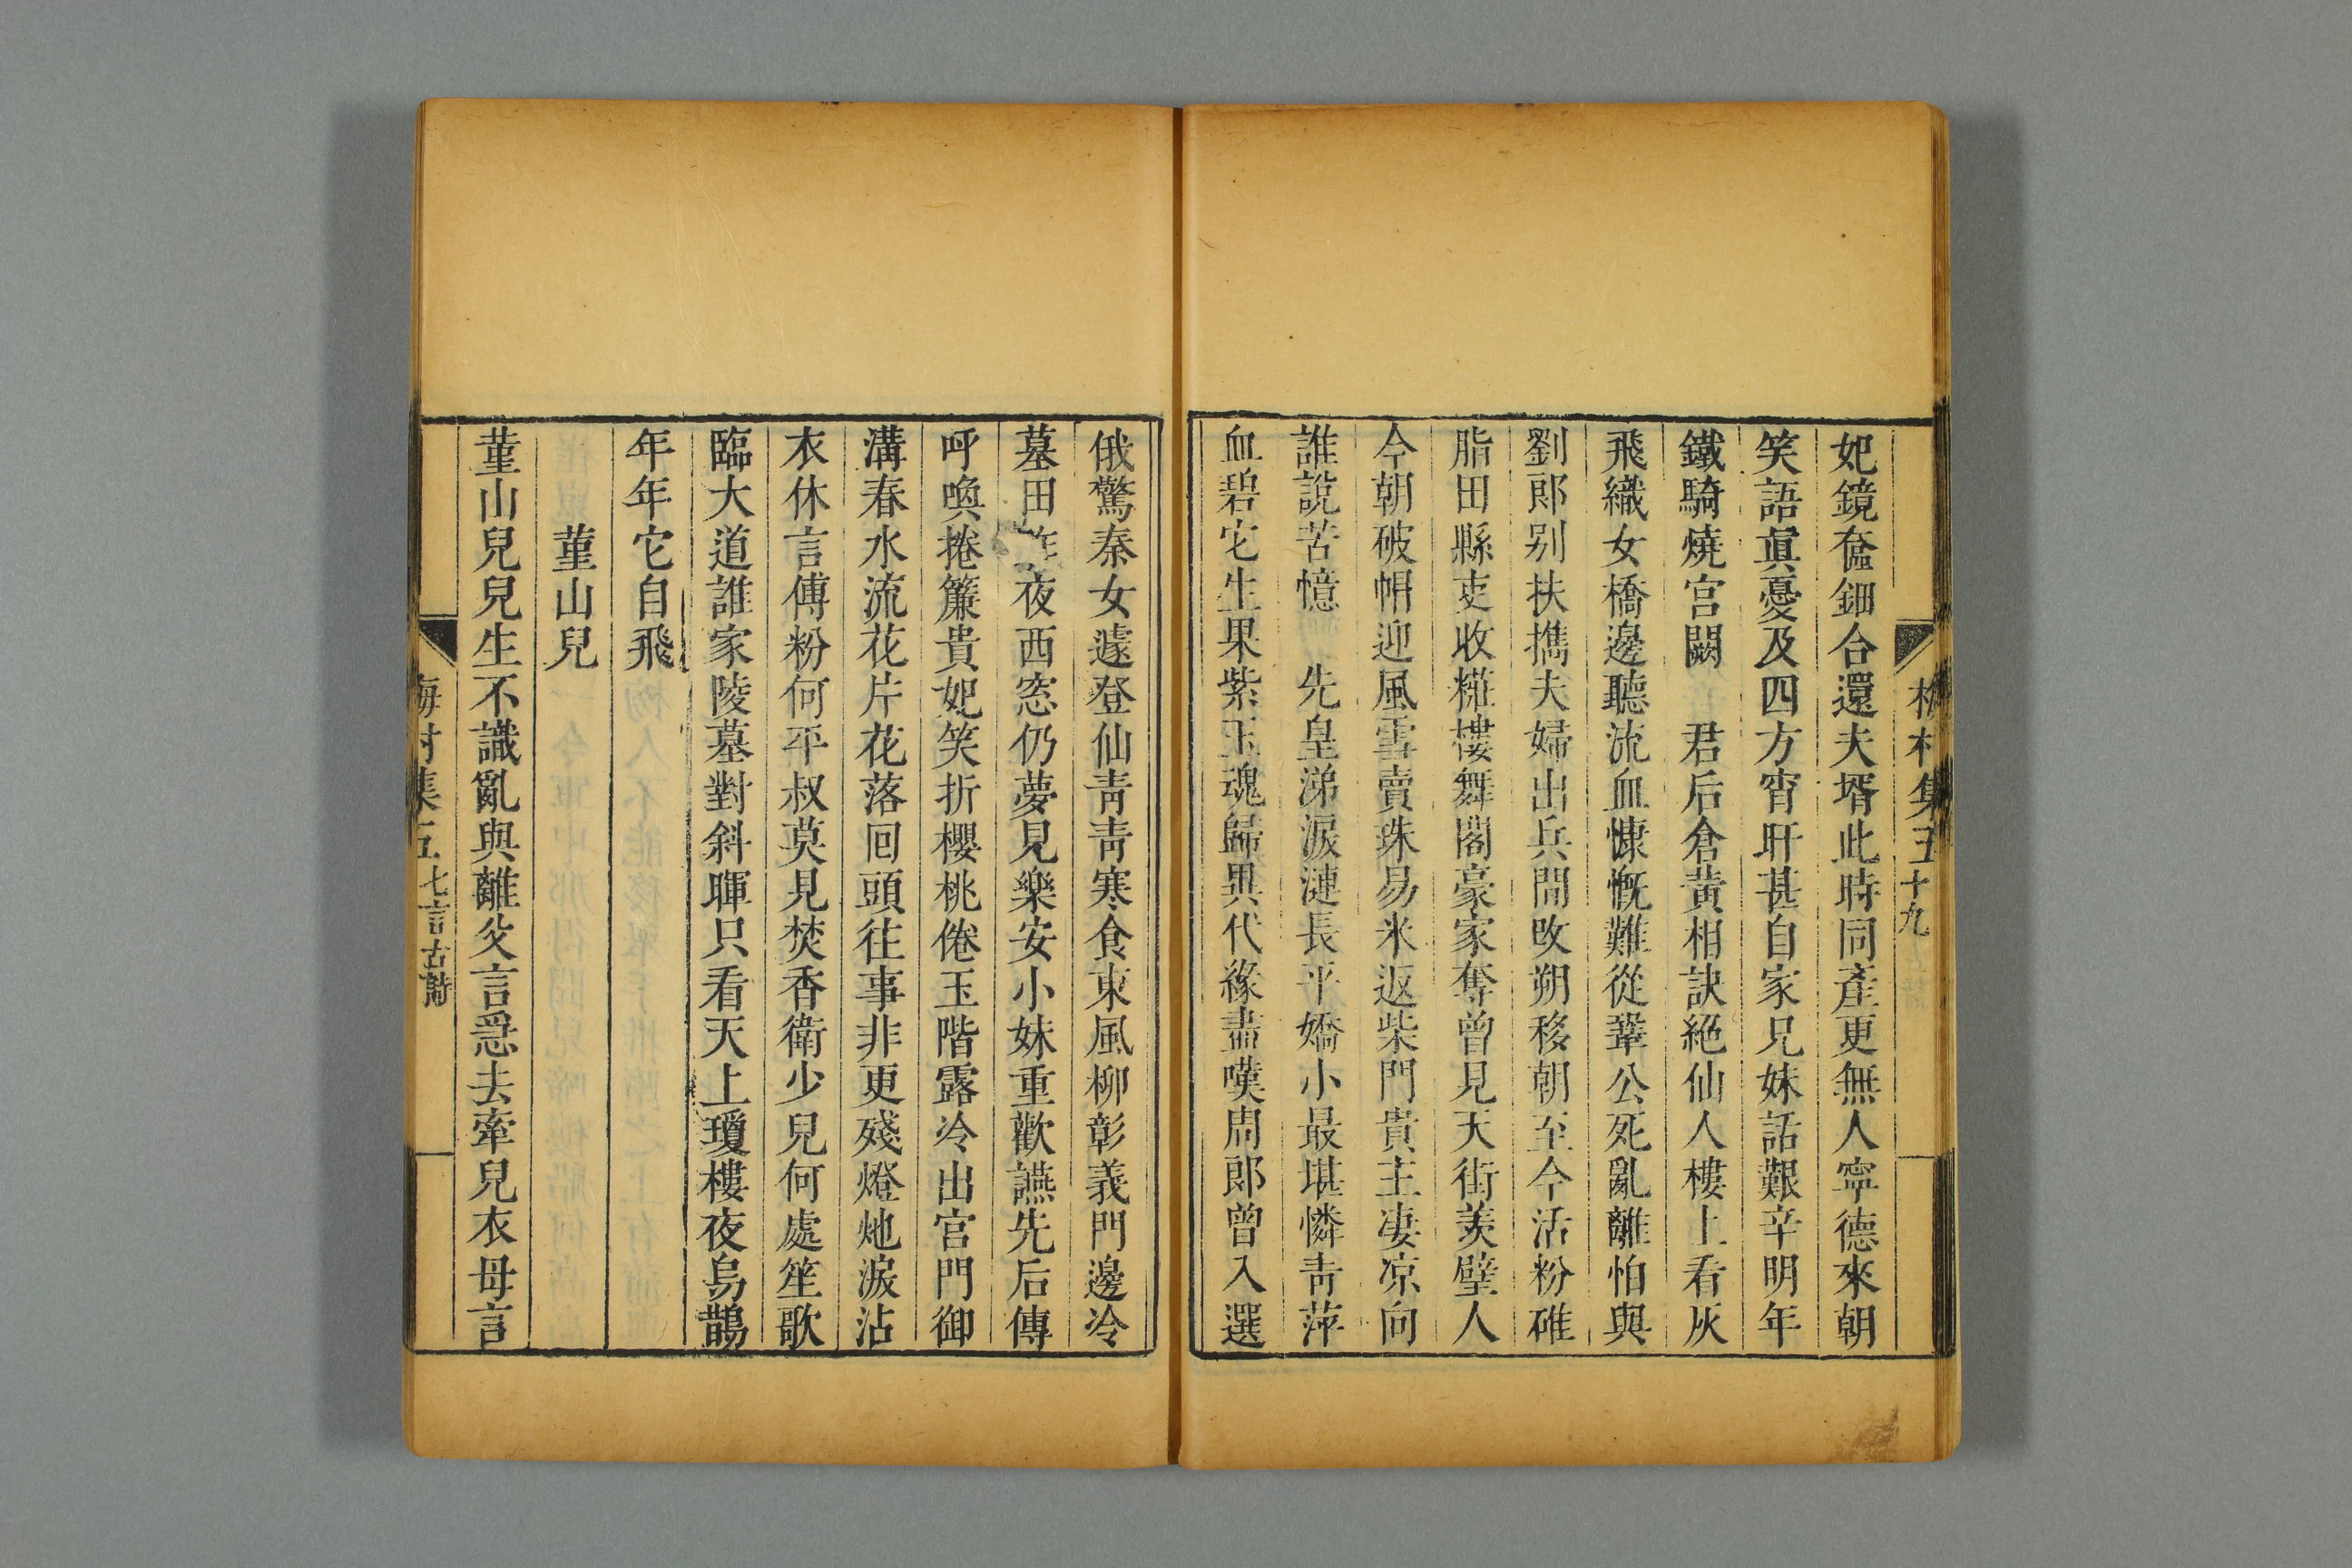 梅村集五 十九
妃鏡奩鈿合還夫壻此時同產更無人寧德來朝
笑語真憂及四方宵旰甚自家兄妹話艱辛明年
鐵騎燒宫闕 君后倉黄相訣絕仙人樓上看灰
飛織女橋邊聽流血慷慨難從鞏公死亂離怕與
劉郎别扶攜夫婦出兵間改朔移朝至今活粉碓
脂田縣吏收粧樓舞閣豪家奪曾見天街羡璧人
今朝破帽迎風雪賣珠易米返柴門貴主凄凉向
誰說苦憶 先皇涕淚漣長平嬌小最堪憐青萍
血碧它生果紫玉魂歸異代緣盡嘆周郎曾入選
俄驚秦女遽登仙青青寒食東風柳彰義門邊冷
墓田昨夜西窓仍夢見樂安小妹重歡讌先后傳
呼喚捲簾貴妃笑折櫻桃倦玉階露冷出宫門御
溝春水流花片花落回頭往事非更殘燈灺淚沾
衣休言傅粉何平叔莫見焚香衛少兒何處笙歌
臨大道誰家陵墓對斜暉只看天上瓊樓夜烏鵲
年年它自飛
董山兒
董山兒兒生不識亂與離父言急去牽兒衣母言
梅村集五 七言古詩